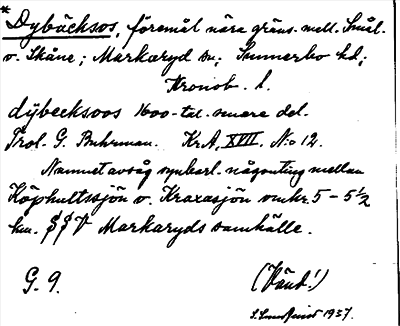 * Dybäcksos, föremål nära gräns. mell. Smål.
o. Skåne; Markaryd sn; Sunnerbo hd;
Kronob. l.
dÿbecksoos 1600-tal. senare del.
Prol. G. Buhrman. KrA, XVII. N:o 12.
Namnet avsåg synbarl. någonting mellan
Köphultssjön o. Kraxasjön omkr. 5 – 5½
km. SSV Markaryds samhälle.
G. 9. (Vänd!)
1937.